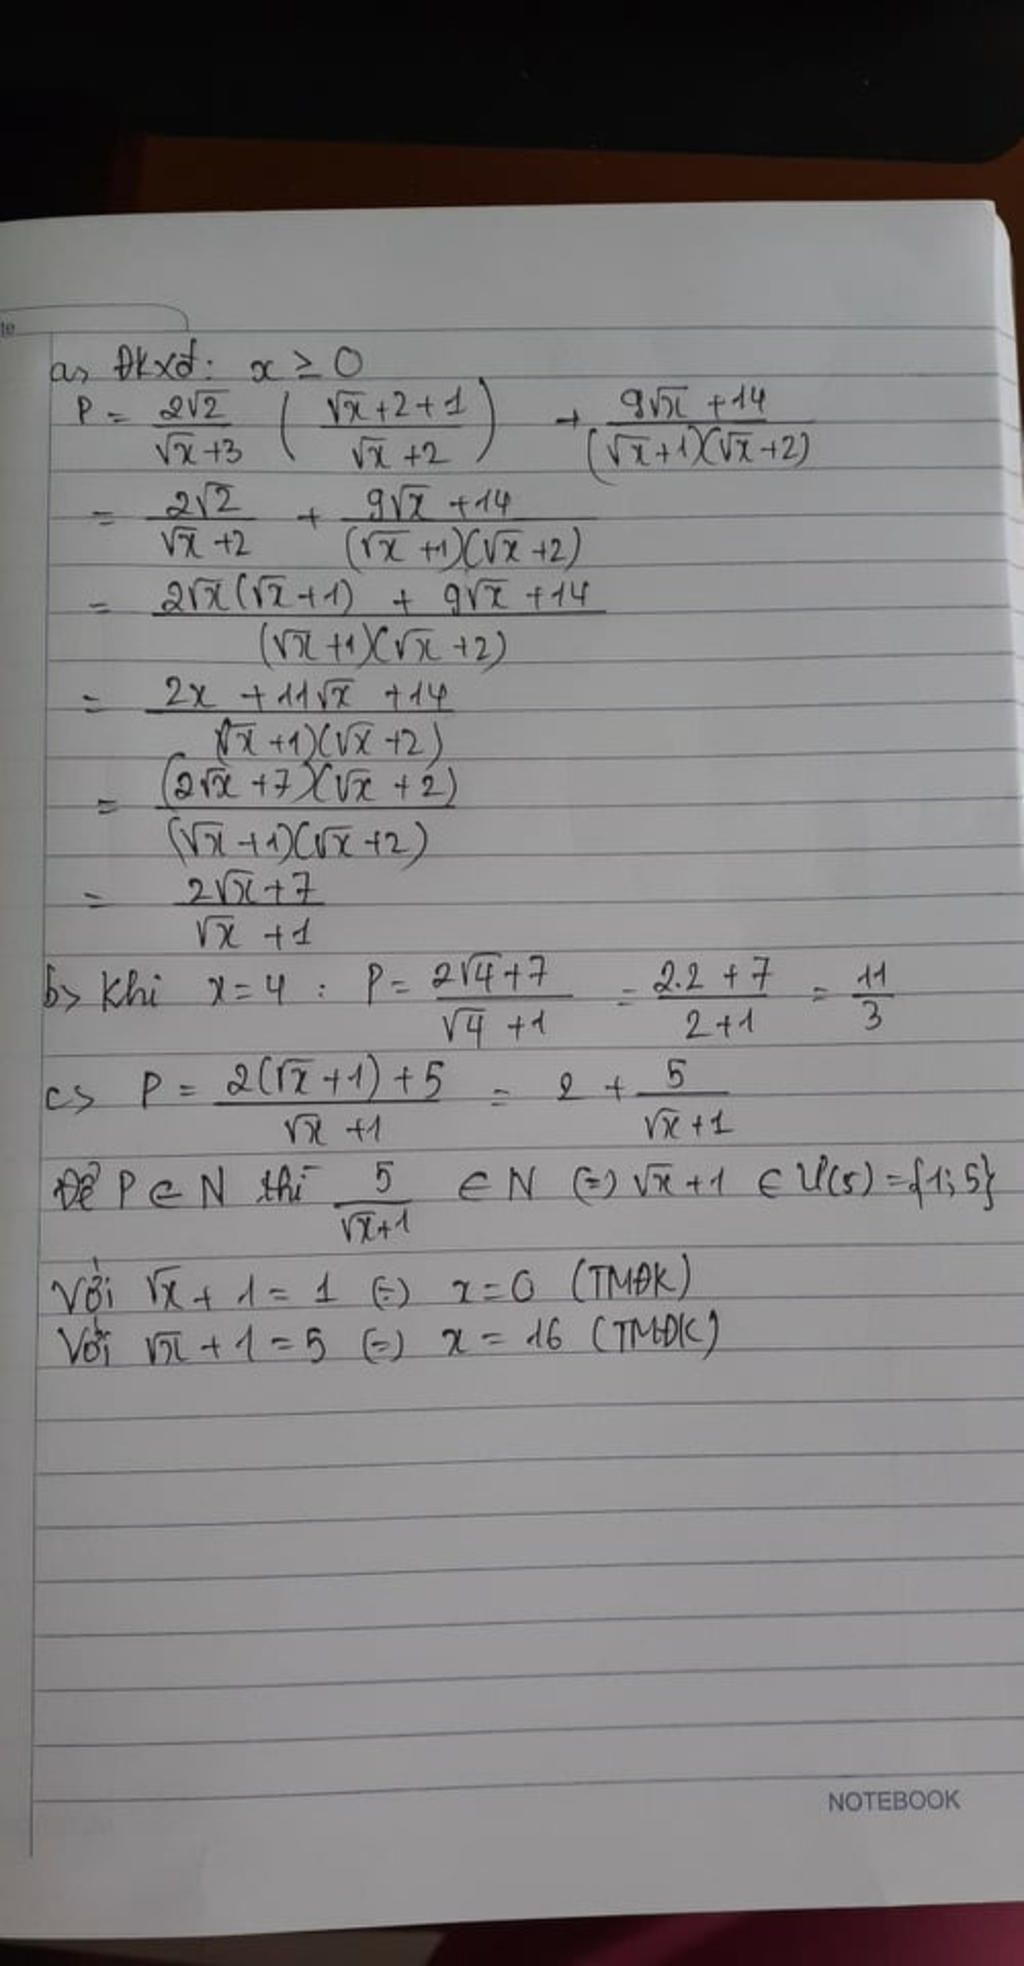 te
a, ĐKXĐ: x ≥ 0
P = 2√2/(√x+3) ( (√x+2+1)/(√x+2) ) + (9√x+14)/((√x+1)(√x+2))
= 2√2/(√x+2) + (9√x+14)/((√x+1)(√x+2))
= (2√x(√x+1) + 9√x+14)/((√x+1)(√x+2))
= (2x + 11√x + 14)/((√x+1)(√x+2))
= ((2√x+7)(√x+2))/((√x+1)(√x+2))
= (2√x+7)/(√x+1)
b> Khi x=4 : P = (2√4+7)/(√4+1) = (2.2+7)/(2+1) = 11/3
c> P = (2(√x+1)+5)/(√x+1) = 2 + 5/(√x+1)
Để P∈N thì 5/(√x+1) ∈N (=) √x+1 ∈Ư(5)={1;5}
Với √x+1=1 (=) x=0 (TMĐK)
Với √x+1=5 (=) x=16 (TMĐK)
NOTEBOOK